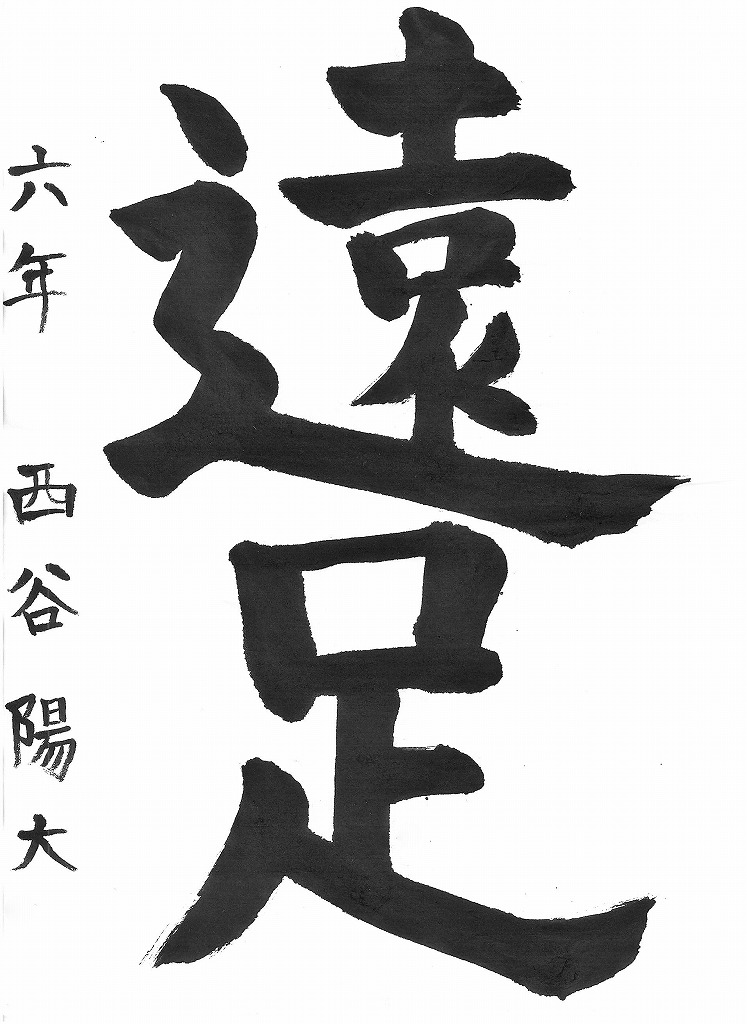 遠足
六年 西谷陽大